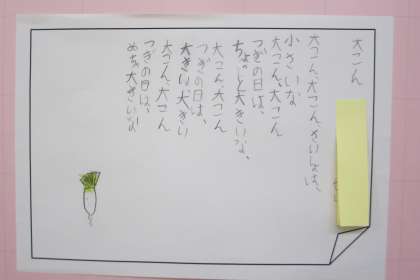 大こん
大こん、大こん、さいしょは、
小さいな
大こん、大こん
つぎの日は、
ちょっと大きいな、
大こん大こん
つぎの日は、
大きい、大きい
大こん、大こん
つぎの日は、
めっちゃ大きいな